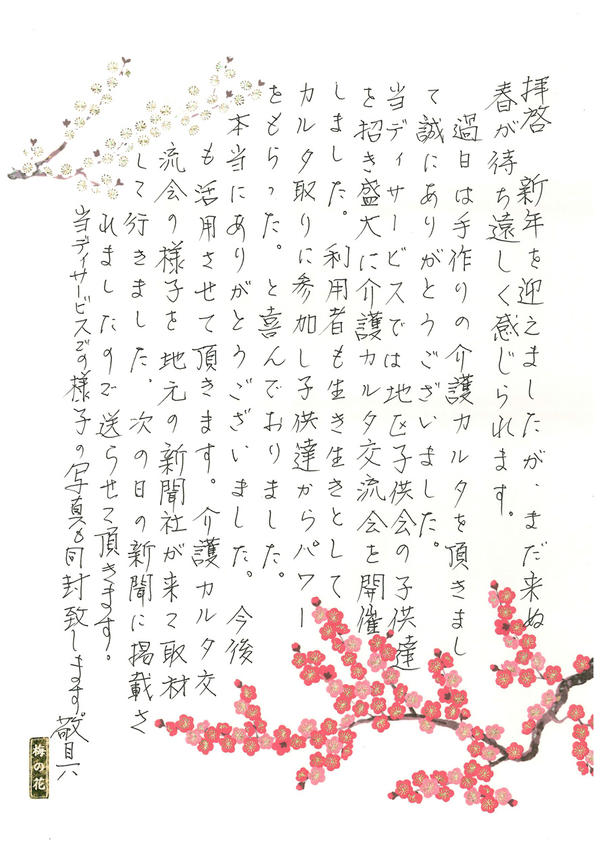 拝啓　新年を迎えましたが、まだ来ぬ
春が待ち遠しく感じられます。
過日は手作りの介護カルタを頂きまし
て誠にありがとうございました。
当ディサービスでは地区子供会の子供達
を招き盛大に介護カルタ交流会を開催
しました。利用者も生き生きとして
カルタ取りに参加し子供達からパワー
をもらった。と喜んでおりました。
本当にありがとうございました。今後
も活用させて頂きます。介護カルタ交
流会の様子を地元の新聞社が来て取材
して行きました。次の日の新聞に掲載さ
れましたので送らせて頂きます。
当ディサービスでの様子の写真も同封致します。敬具
梅の花